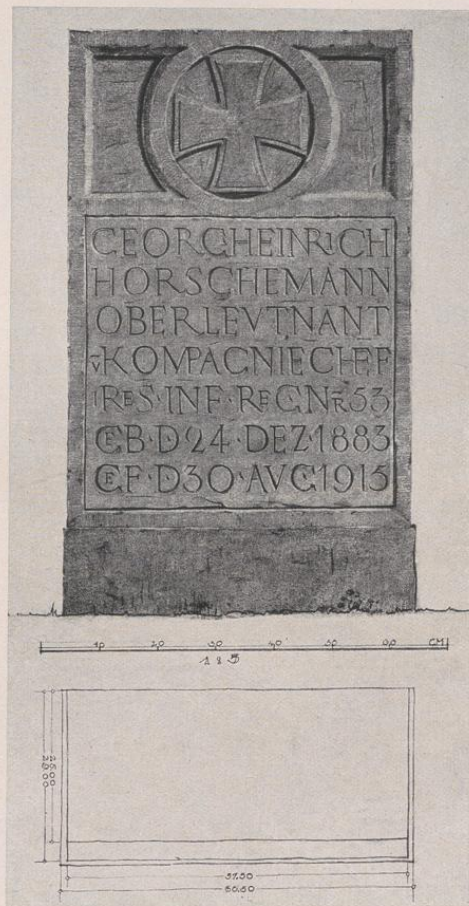 GEORG HEINRICH
HORSCHEMANN
OBERLEVTNANT
V KOMPAGNIECHEF
I RES · INF · REG · NR 53
GEB · D 24 · DEZ · 1883
GEF · D 30 · AVG · 1915
10 20 30 40 50 60 CM
1:5
25.00
29.00
57.50
60.50